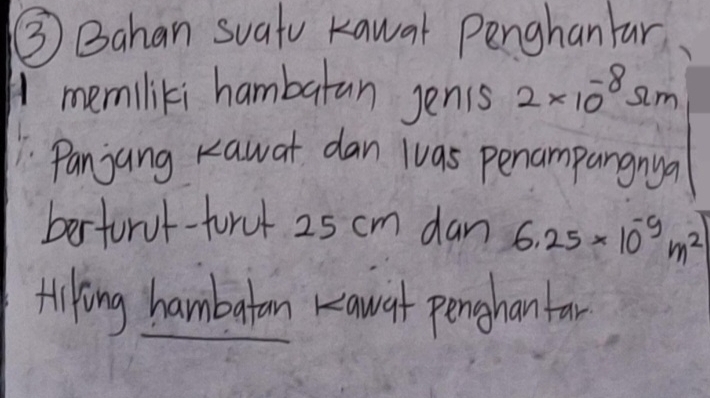 ③ Bahan suatu kawat Penghantar
memiliki hambatan jenis 2 × 10⁻⁸ Ωm
Panjang kawat dan luas penampangnya
berturut-turut 25 cm dan 6.25 × 10⁻⁹ m²
Hitung hambatan kawat penghantar.